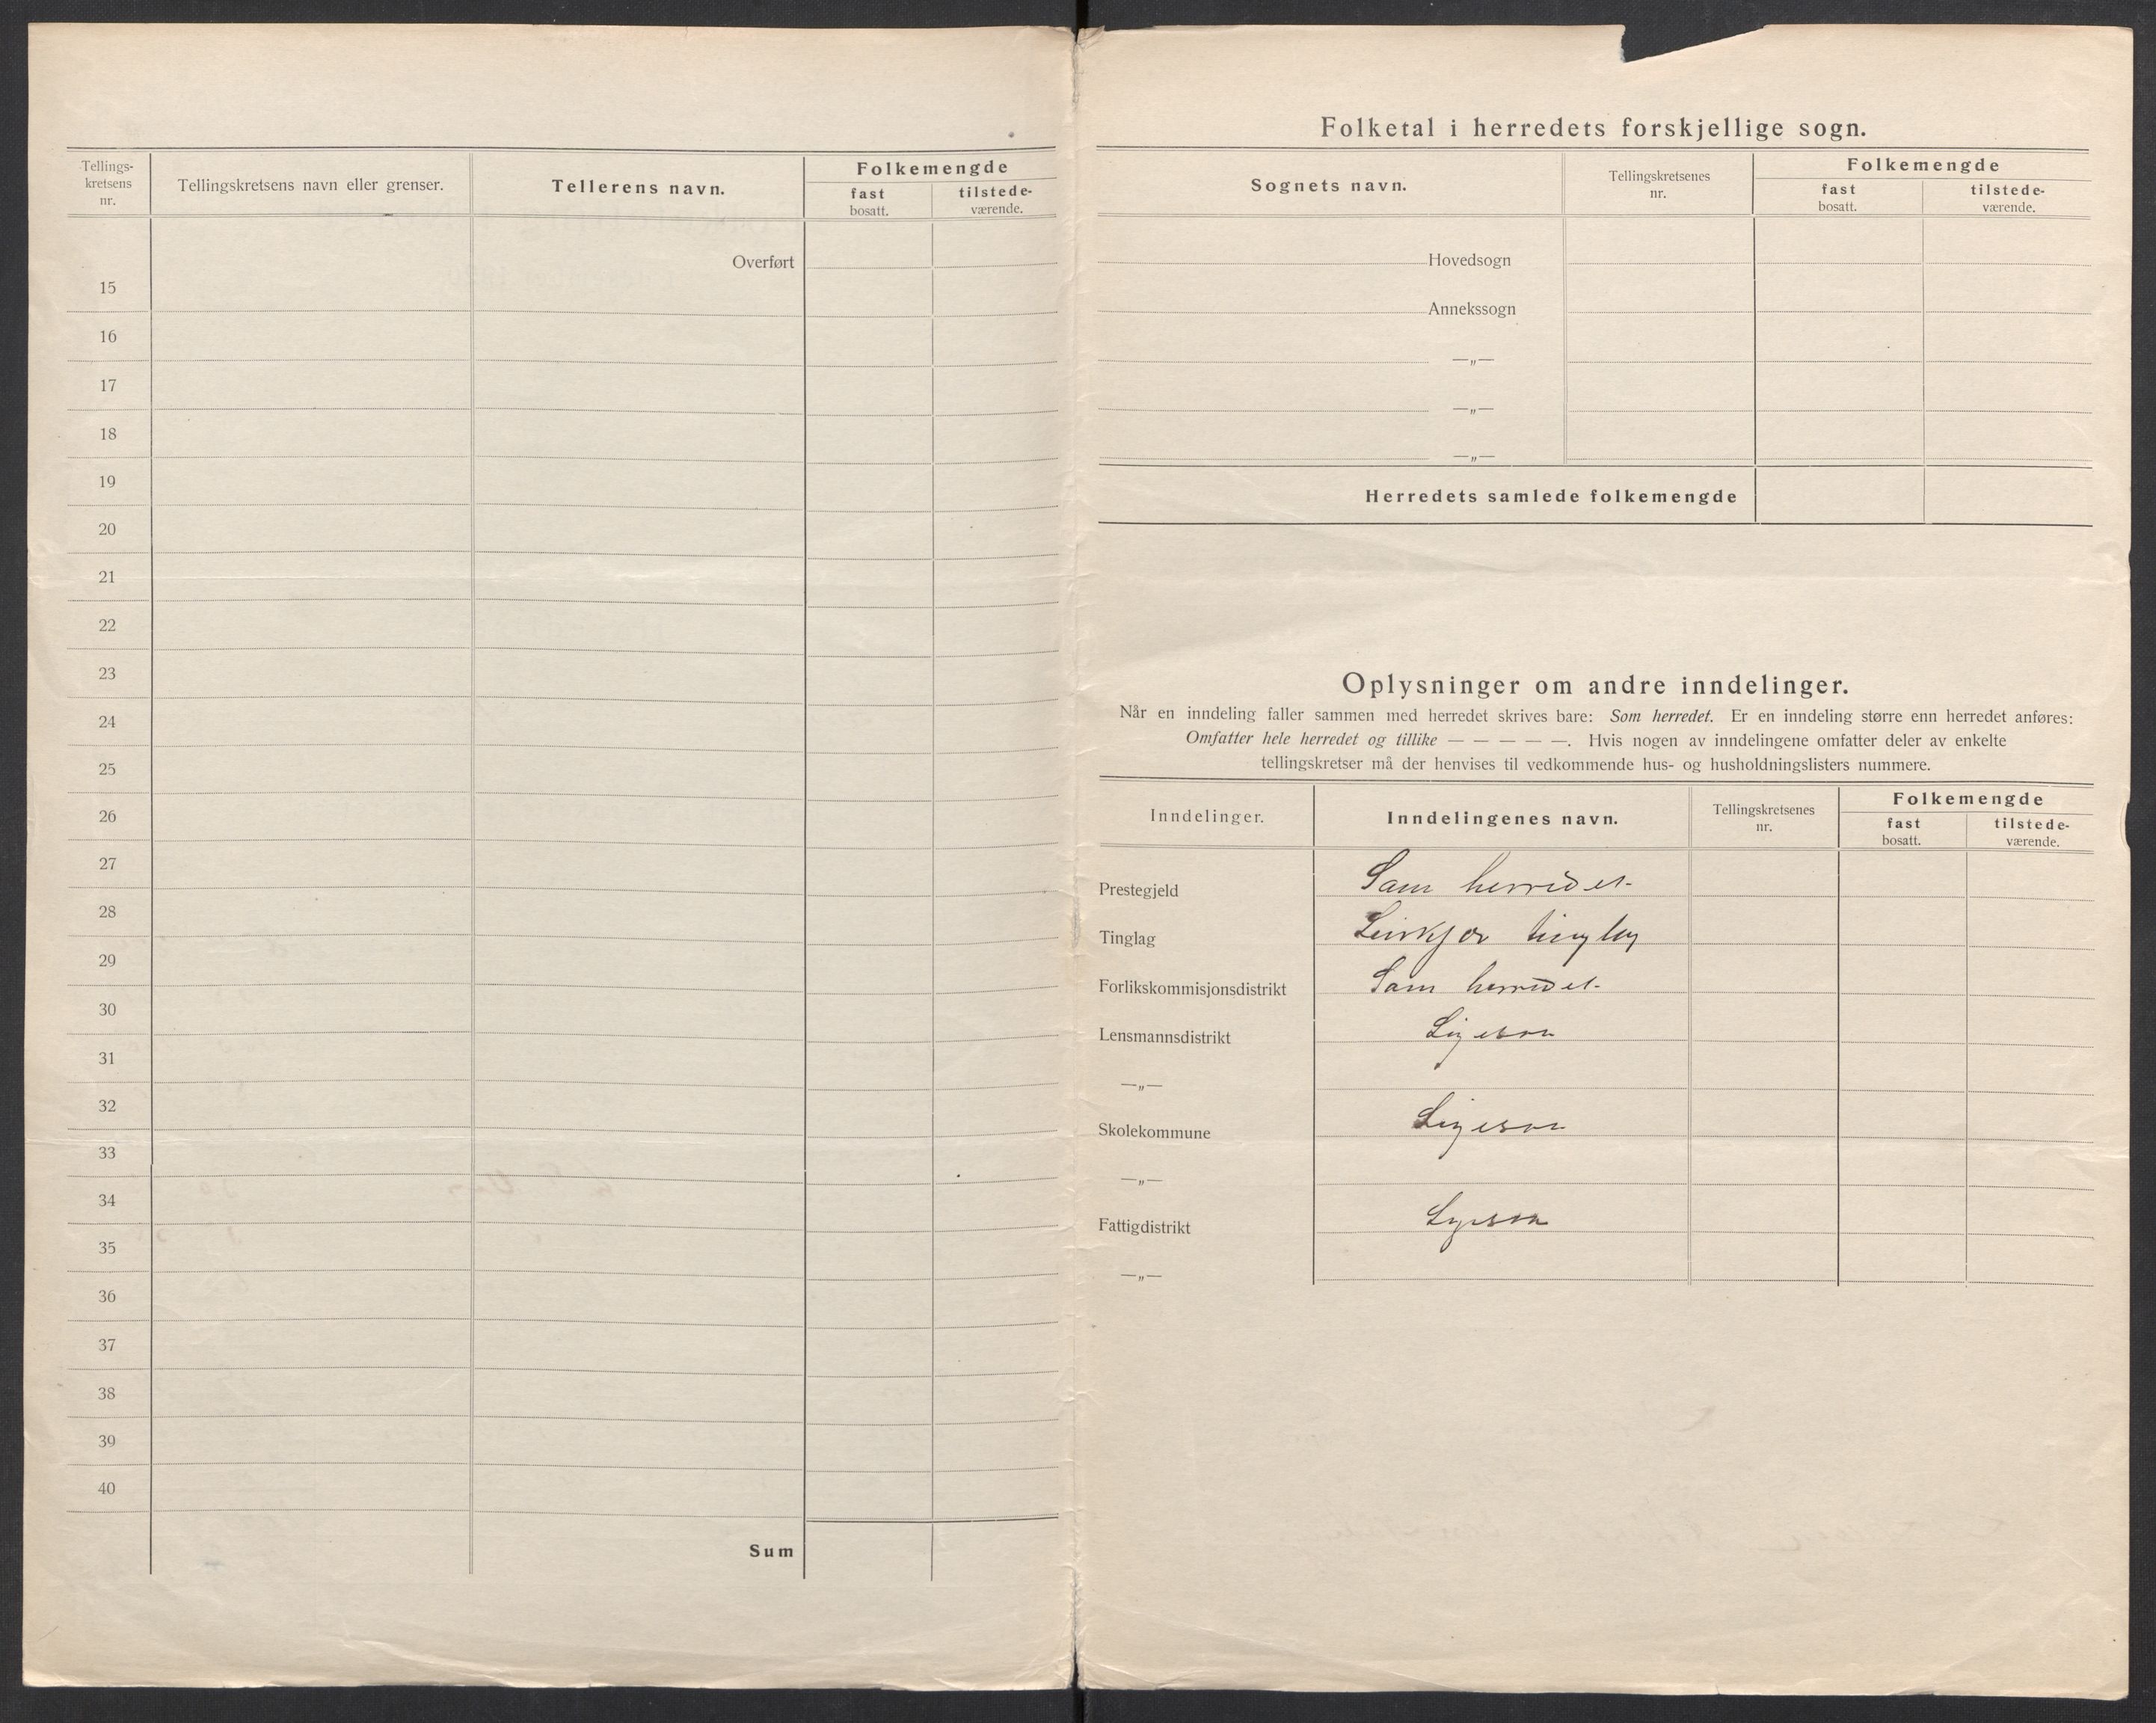 Tellings-
kretsens
nr.
Tellingskretsens navn eller grenser.
Tellerens navn.
Folkemengde
fast
bosatt.
tilstede-
værende.
Overført
15
16
17
18
19
20
21
22
23
24
25
26
27
28
29
30
31
32
33
34
35
36
37
38
39
40
Sum
Folketal i herredets forskjellige sogn.
Sognets navn.
Tellingskretsenes
nr.
Folkemengde
fast
bosatt.
tilstede-
værende.
Hovedsogn
Annekssogn
—„—
—„—
—„—
Herredets samlede folkemengde
Oplysninger om andre inndelinger.
Når en inndeling faller sammen med herredet skrives bare: Som herredet. Er en inndeling større enn herredet anføres:
Omfatter hele herredet og tillike — — — — —. Hvis nogen av inndelingene omfatter deler av enkelte
tellingskretser må der henvises til vedkommende hus- og husholdningslisters nummere.
Inndelinger.
Inndelingenes navn.
Tellingskretsenes
nr.
Folkemengde
fast
bosatt.
tilstede-
værende.
Prestegjeld Som herredet
Tinglag tinglag
Forlikskommisjonsdistrikt Som herredet
Lensmannsdistrikt Ligesom
—„—
Skolekommune Ligesom
—„—
Fattigdistrikt Ligesom
—„—